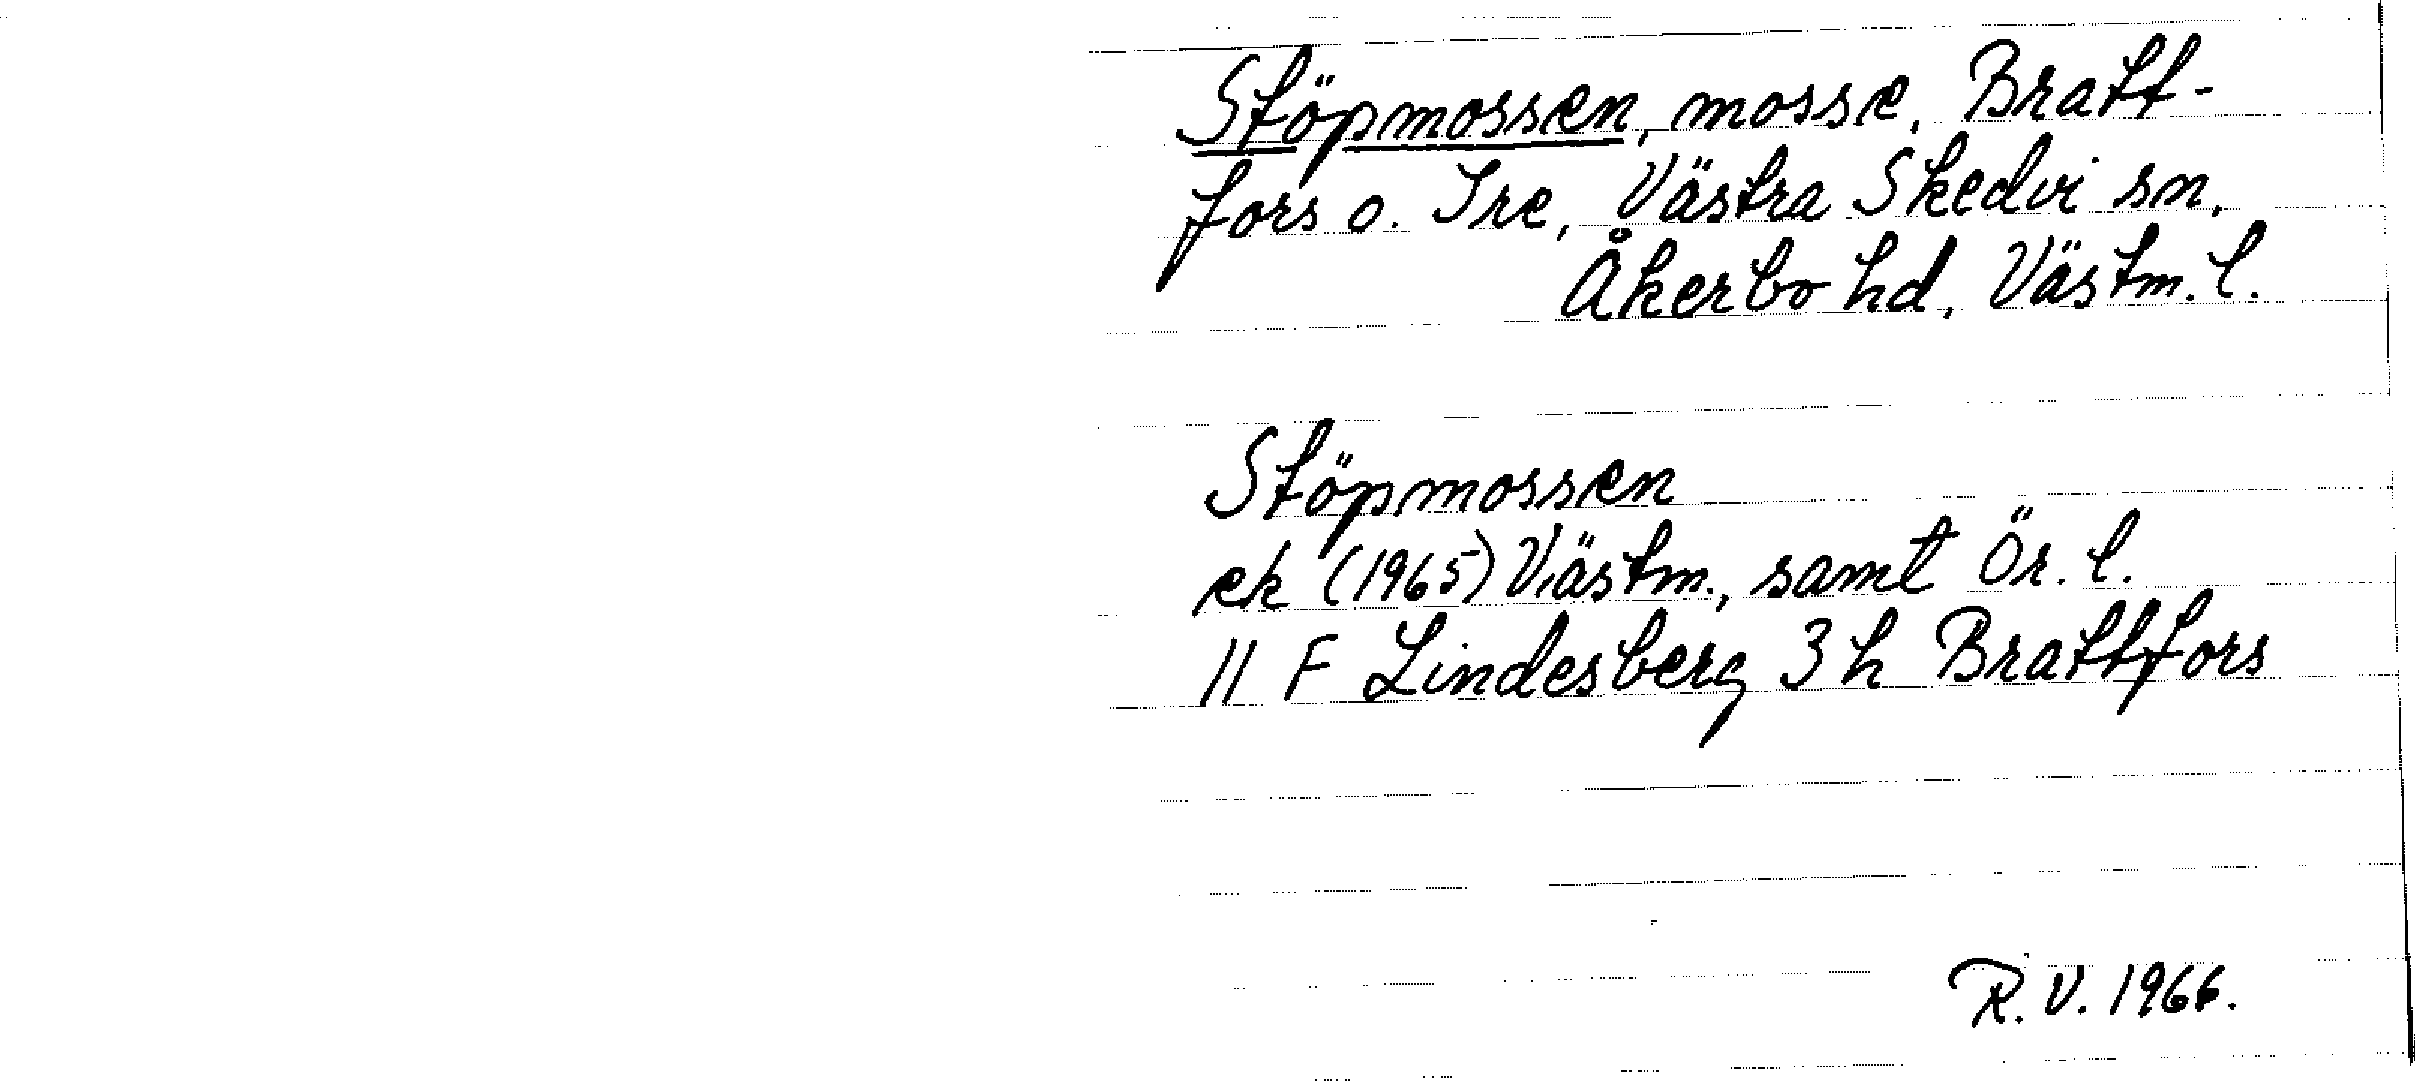 Stöpmossen, mosse, Bratt-
fors o. Tre, Västra Skedvi sn,
Åkerbo hd, Västm. l.
Stöpmossen
ek (1965) Västm., samt Ör. l.
11 F Lindesberg 3 h Brattfors
R. V. 1966.